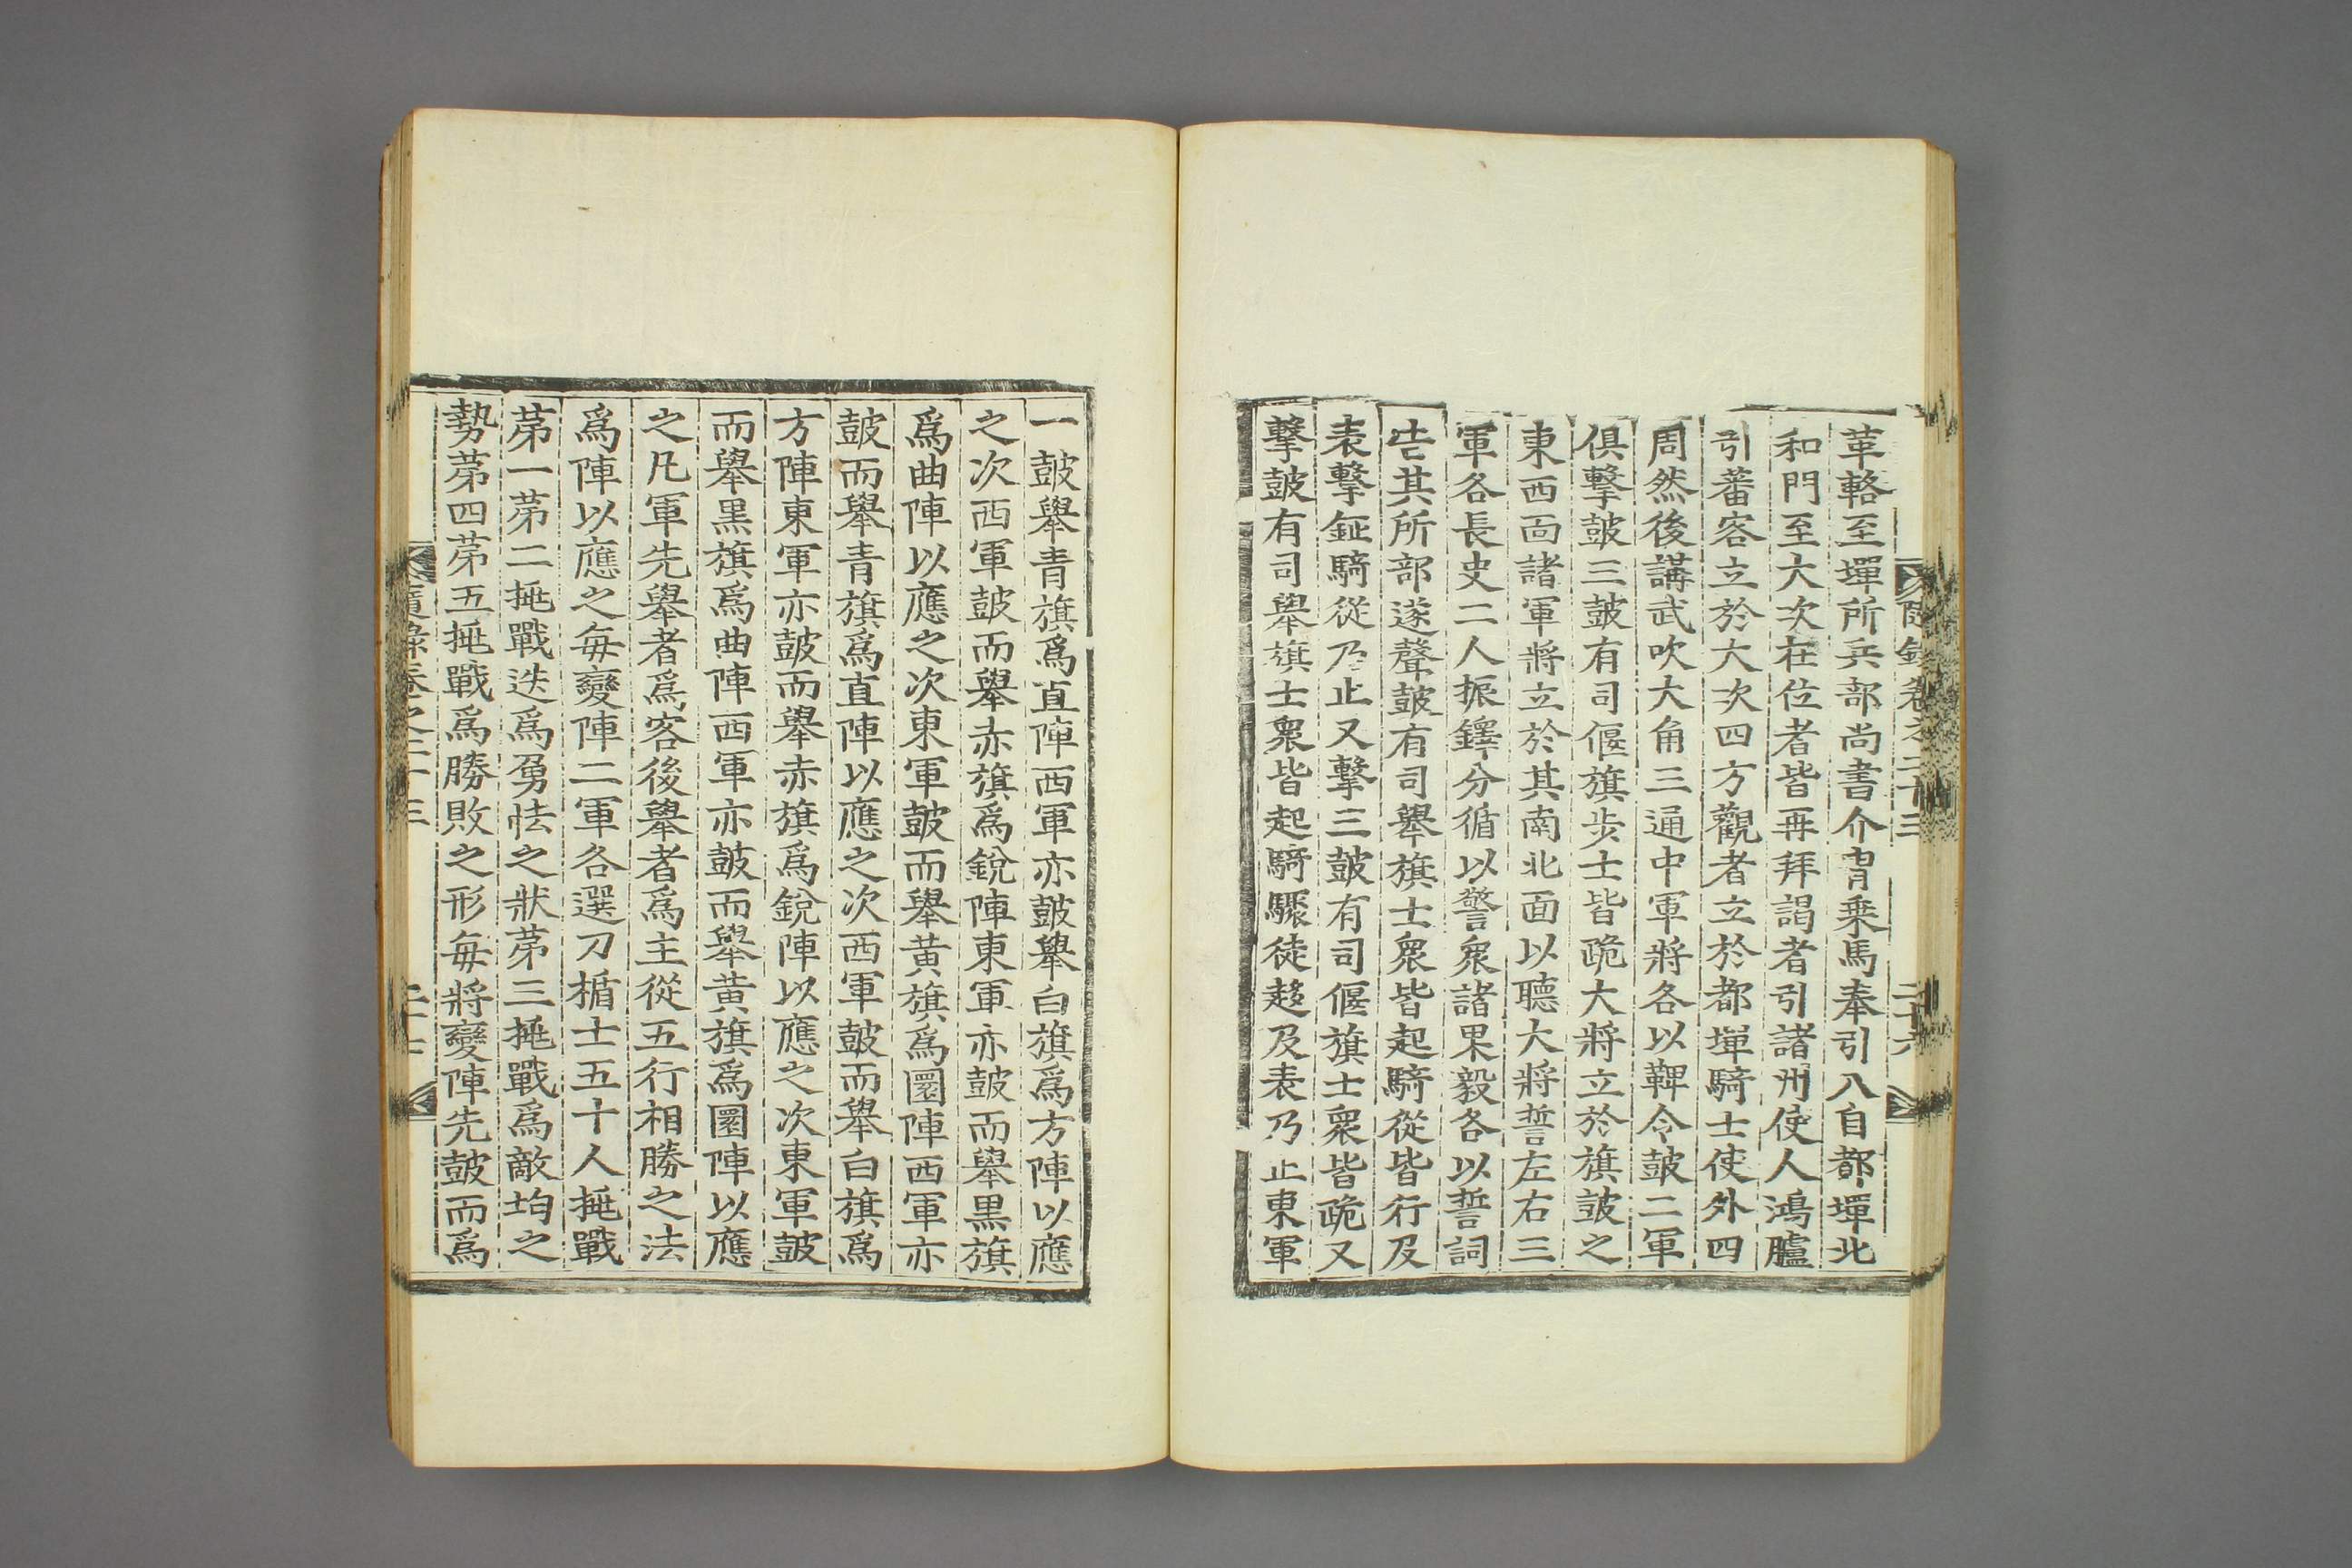 革輅至墠所兵部尚書介胄乗馬奉引入自都墠北
和門至大次在位者皆再拜謁者引諸州使人鴻臚
引蕃客立於大次四方觀者立於都墠騎士使外四
周然後講武吹大角三通中軍將各以鞞令皷二軍
俱擊皷三皷有司偃旗步士皆跪大將立於旗皷之
東西面諸軍將立於其南北面以聽大將誓左右三
軍各長史二人振鐸分循以警衆諸果毅各以誓詞
告其所部遂聲皷有司舉旗士衆皆起騎從皆行及
表擊鉦騎從乃止又擊三皷有司偃旗士衆皆跪又
擊皷有司舉旗士衆皆起騎驟徒趍及表乃止東軍
隨錄卷之二十三
二十六
一皷舉青旗爲直陣西軍亦皷舉白旗爲方陣以應
之次西軍皷而舉赤旗爲銳陣東軍亦皷而舉黒旗
爲曲陣以應之次東軍皷而舉黄旗爲圜陣西軍亦
皷而舉青旗爲直陣以應之次西軍皷而舉白旗爲
方陣東軍亦皷而舉赤旗爲銳陣以應之次東軍皷
而舉黒旗爲曲陣西軍亦皷而舉黄旗爲圜陣以應
之凡軍先舉者爲客後舉者爲主從五行相勝之法
爲陣以應之每變陣二軍各選刀楯士五十人挑戰
苐一苐二挑戰迭爲勇怯之狀苐三挑戰爲敵均之
勢苐四苐五挑戰爲勝敗之形每將變陣先皷而爲
隨錄卷之二十三
二十七